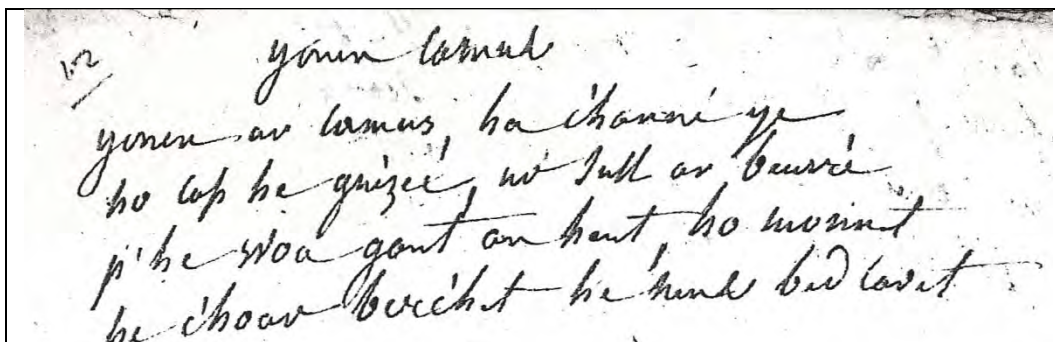 102
yonen camus
yonen ar camus, ha channé ye
ho cas he guizéé, ur sull ar beuré
p'he woa gant an hent, ho monnet
he c'hoar berc'het he neus bed cavet